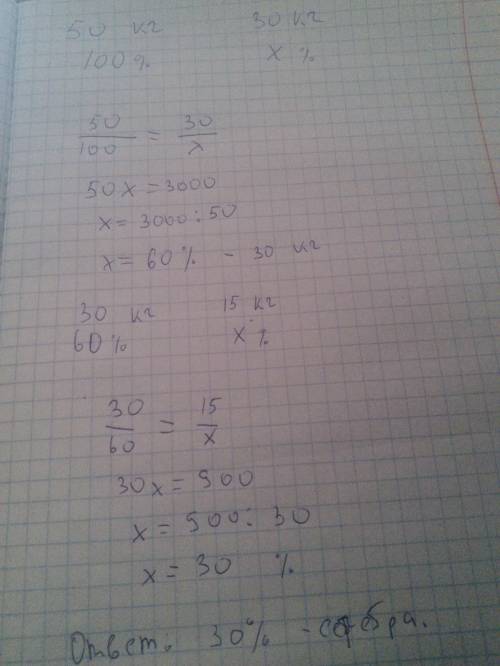 50 кг 30 кг
100% x %
50/100 = 30/x
50x = 3000
x = 3000 : 50
x = 60% - 30 кг
30 кг 15 кг
60% x %
30/60 = 15/x
30x = 900
x = 900 : 30
x = 30 %
Ответ: 30% -